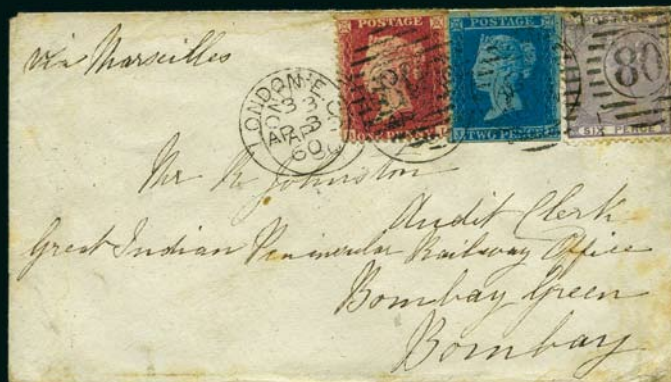 via Marseilles
POSTAGE
POSTAGE
TWO PENCE
SIX PENCE
80
LONDON
3
AP 3
60
Mr R Johnston
Audit Clerk
Great Indian Peninsular Railway Office
Bombay Green
Bombay